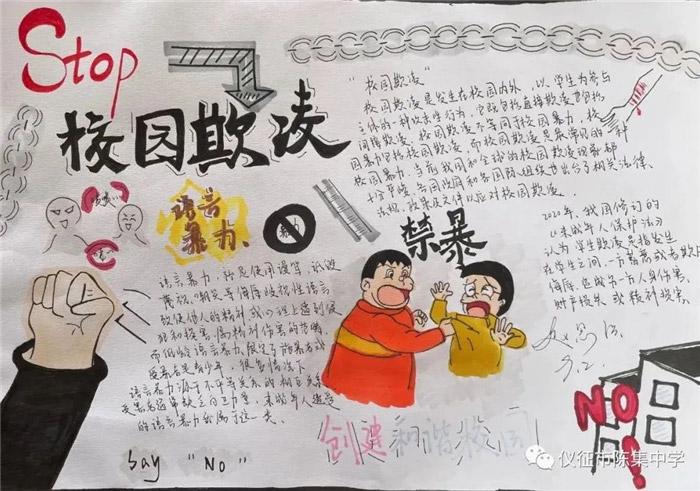 Stop
校园欺凌
"校园欺凌"
校园欺凌是发生在校园内外，以学生为参与
主体的一种攻击性行为，它既包括直接欺凌也包括
间接欺凌。校园欺凌不等同于校园暴力，校
园暴力包括校园欺凌，而校园欺凌是最常见的一种
校园暴力。当前我国和全球的校园欺凌现象都
十分严峻，各国政府和各国际组织也出台了相关法律、
法规、政策及文件以应对校园欺凌。
2020年，我国修订的
《未成年人保护法》
认为学生欺凌是指发生
在学生之间，一方蓄意或者欺
侮辱，造成另一方人身伤害、
财产损失或精神损害。
语言
暴力
暴力
禁暴
语言暴力，就是使用谩骂、诋毁
蔑视、嘲笑等侮辱歧视性语言
致使他人的精神或心理上遭到侵
犯和损害，属精神伤害的范畴
语言暴力源于不平等关系的相互关系
的语言暴力就属于这一类。
say "NO"
创建和谐校园
NO!
仪征市陈集中学